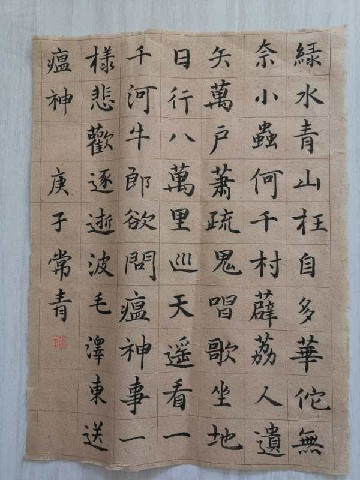 緑水青山枉自多華佗無
奈小蟲何千村薜荔人遺
矢萬戶蕭疏鬼唱歌坐地
日行八萬里巡天遙看一
千河牛郎欲問瘟神事一
樣悲歡逐逝波毛澤東送
瘟神 庚子常青